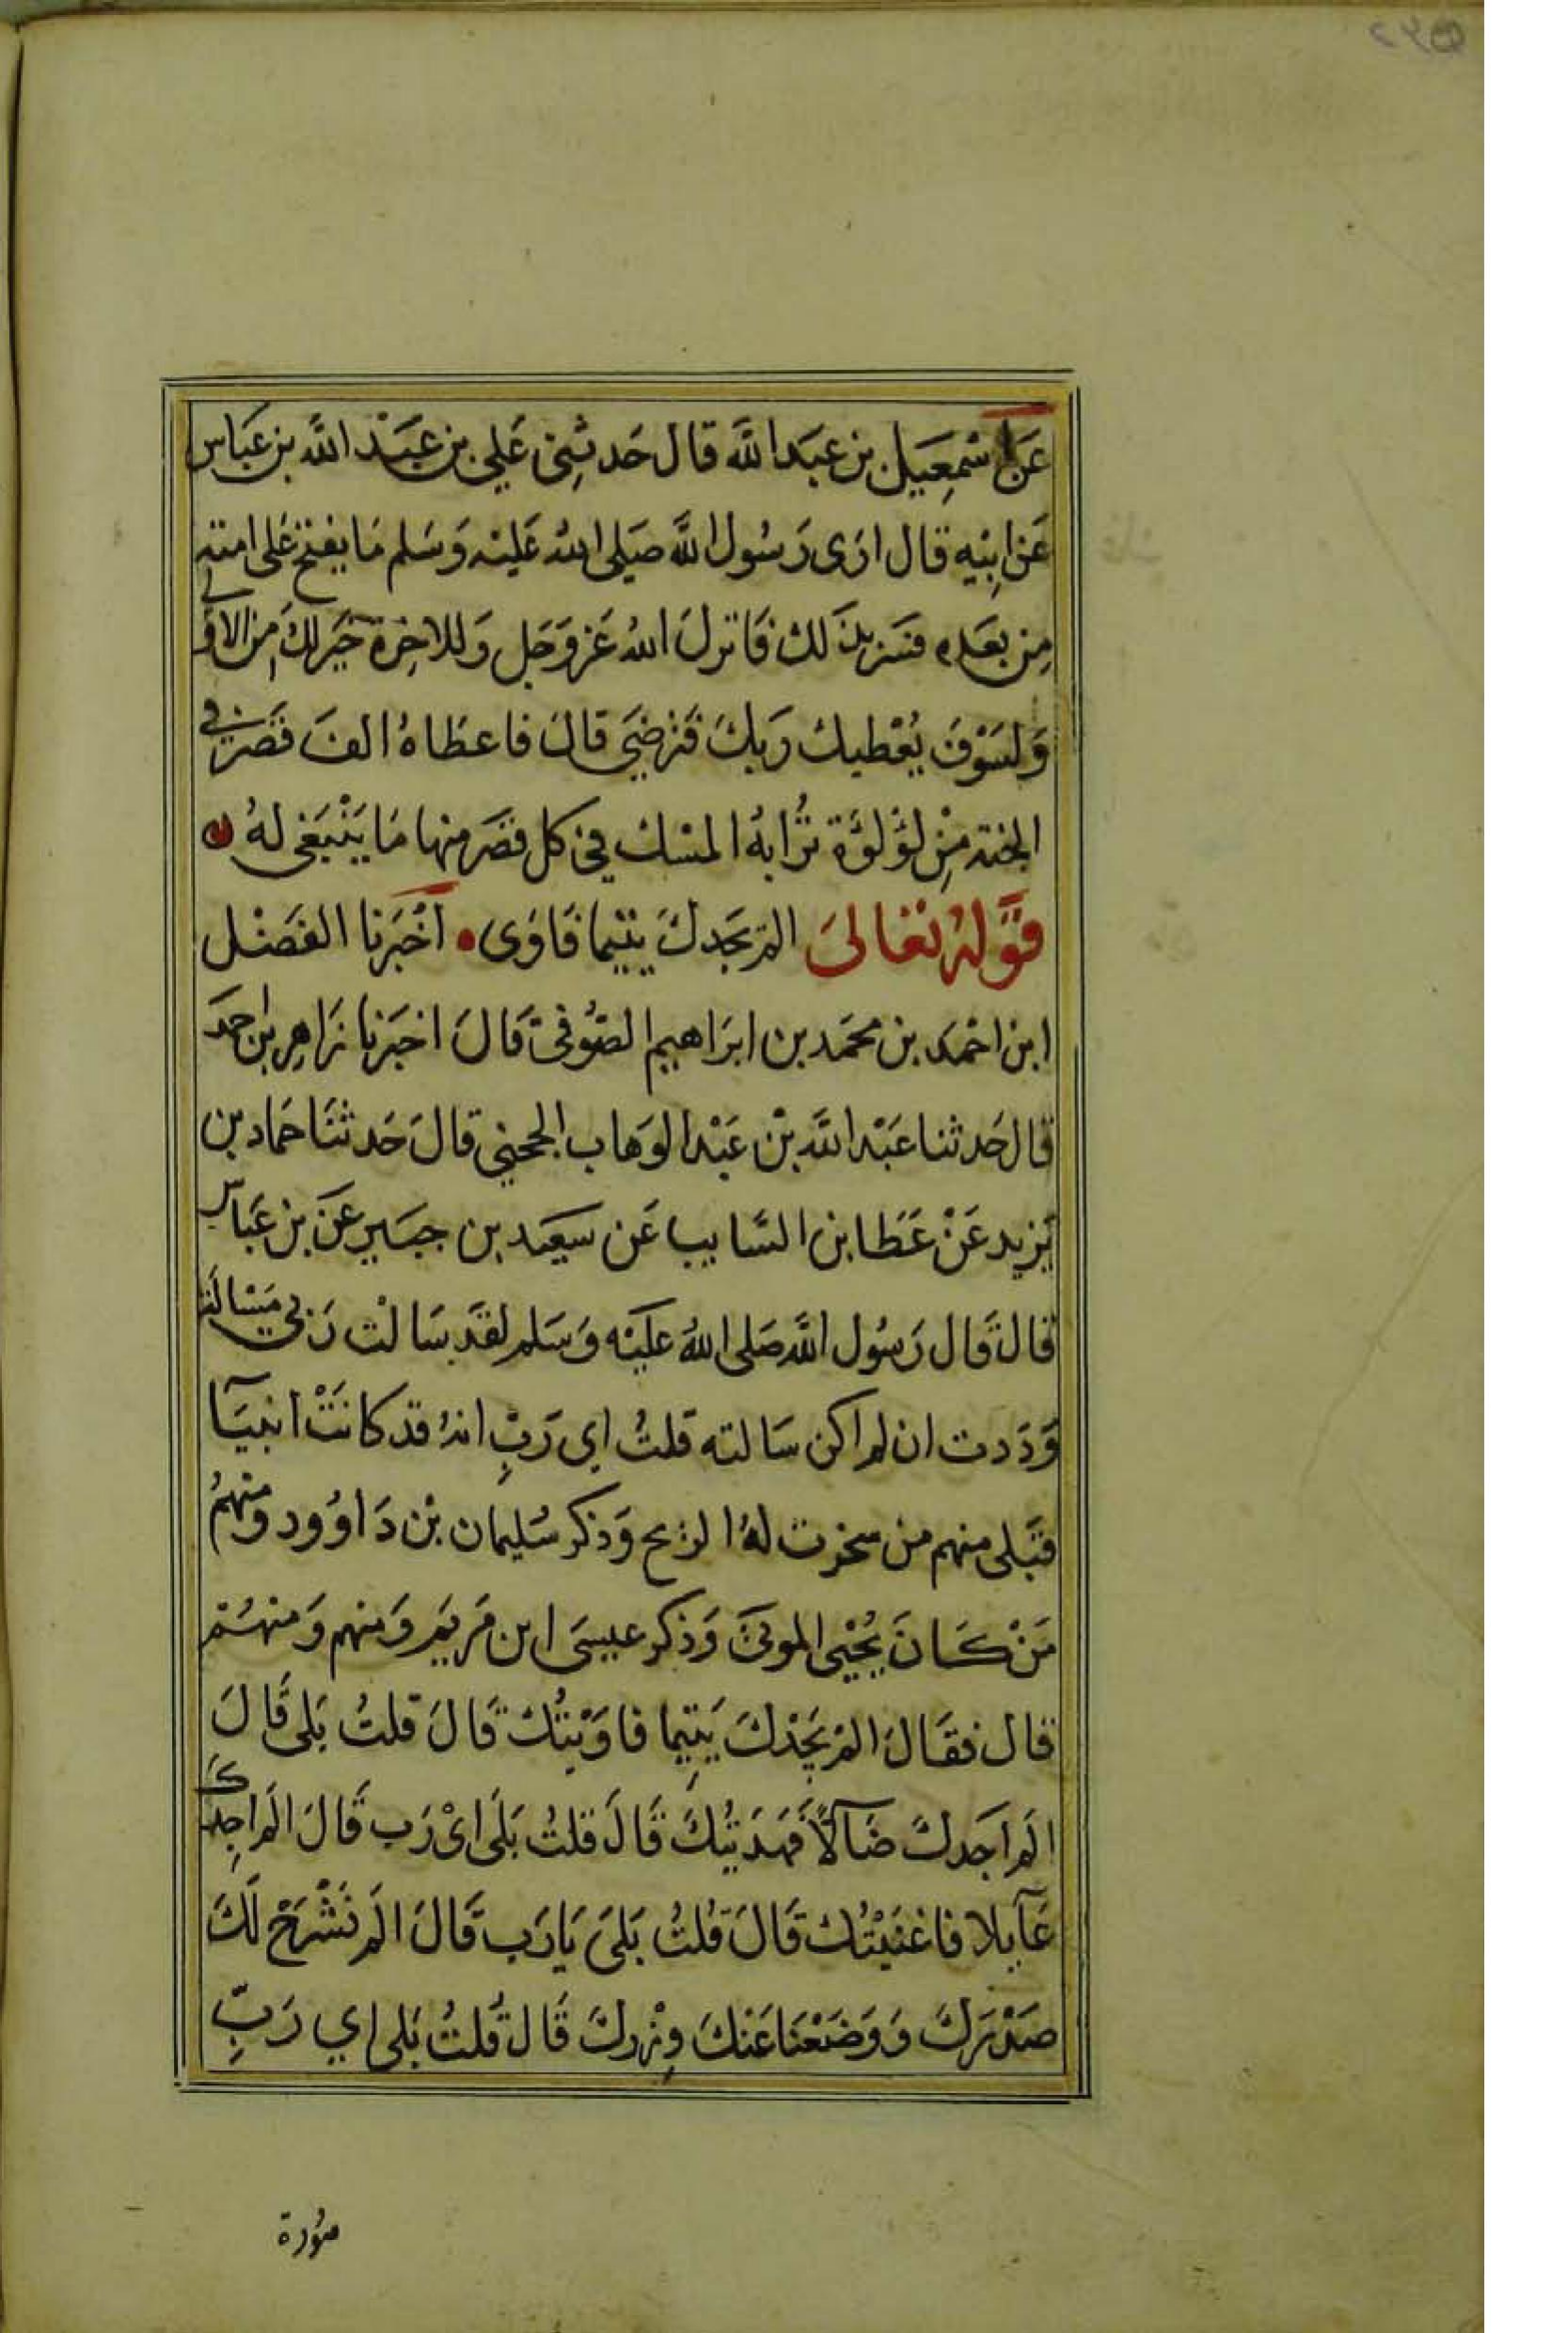 عَن اسْمعِيَل بن عبَد اللَّه قال حَدثنِى عَلِي بن عبَد اللَّه بن عَبَاس
عَن ابيْهِ قال ارَى رَسُول اللَّه صَلى اللهُ عَليْه وَسَلم مَا يفتح عَلى امته
مِن بعَده فسَر بذَلك فَانزلَ اللهُ عَز وَجَل وَللاخِرة خيَر لك مِن الاولى
وَلسَوْفَ يُعْطيكَ رَبكَ فَترضَى قالَ فاعطَاهُ الفَ قصَر في
الجنة مِنْ لؤلؤة تُرابهُ المسْك في كل قصَر منها مَا يَنْبَغي لهُ
قَوْلهُ تعَالىَ الم يَجدكَ يتيما فَاوَى اَخْبَرنا الفَضْل
ابن احمَد بن محمَد بن ابرَاهيم الصُوفى قَالَ اخبَرنا زَاهِر بن احمَد
قال حَدثنا عَبْد اللَّه بْن عَبْد الوَهاب الحجبي قالَ حَدثنَا حمَاد بن
يَزيد عَنْ عَطَا بن السَّايب عَن سَعيَد بن جبَير عَن بن عَبَاس
قال قَال رَسُول اللَّه صَلى اللهُ عَليْه وَسَلم لقَد سَالْت رَبي مَسْالة
وَدَدت ان لم اكن سَالته قلتُ اي رَبِ انهُ قد كانَتْ انبيَآ
قبَلى منهم من سخرت لهُ الريح وَذكر سُليمان بْن دَاوُود وَمنهمُ
مَنْ كَانَ يُحْيي الموتىَ وَذكر عيسَى ابن مَريَم وَمنهم وَمنهُم
قال فقَالَ الم يَجْدكَ يَتِيما فاوَيْتُكَ قَالَ قلتُ بَلى قَالَ
الَم اجَدكَ ضَآلاً فَهدَيتُكَ قَالَ قلتُ بَلَى اىْ رَب قَالَ الَم اجِدكَ
عَآيلا فاغنَيْتُكَ قَالَ قُلتُ بَلىَ يَارَب قَالَ الَم نَشْرَحْ لَكَ
صَدْرَكَ وَوَضَعْنَا عَنْكَ وِزْركَ قَالَ قُلتُ بَلى اي رَبِّ
سُورة